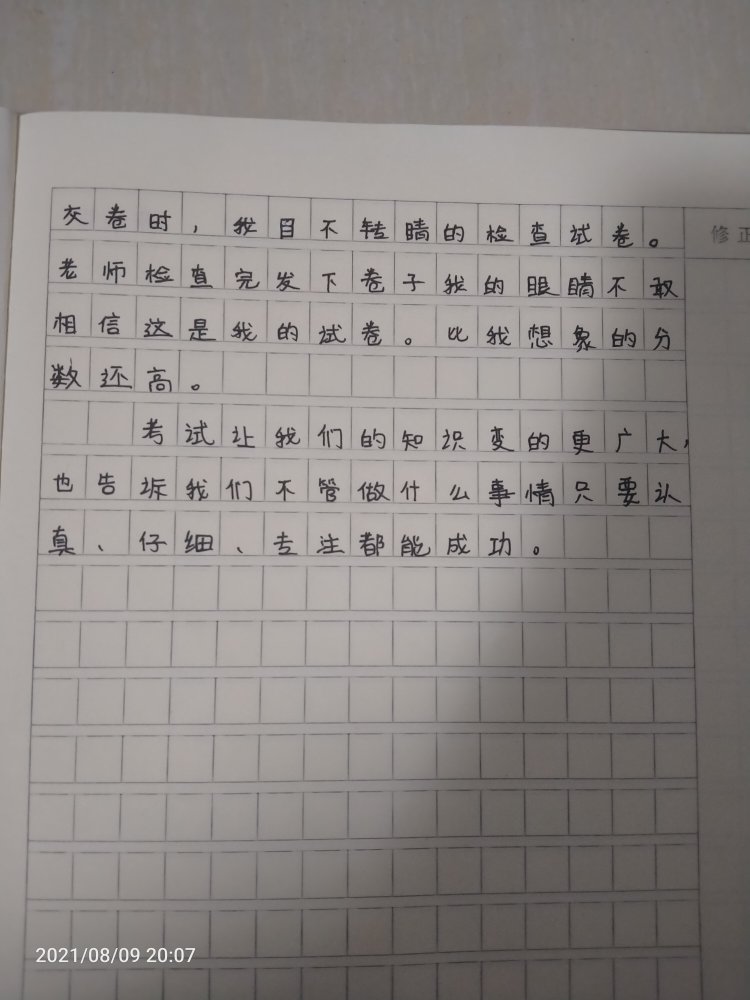 灰卷时，我目不转睛的检查试卷。
修正
老师检查完发下卷子我的眼睛不敢
相信这是我的试卷。比我想象的分
数还高。
考试让我们的知识变的更广大，
也告诉我们不管做什么事情只要认
真、仔细、专注都能成功。
2021/08/09 20:07